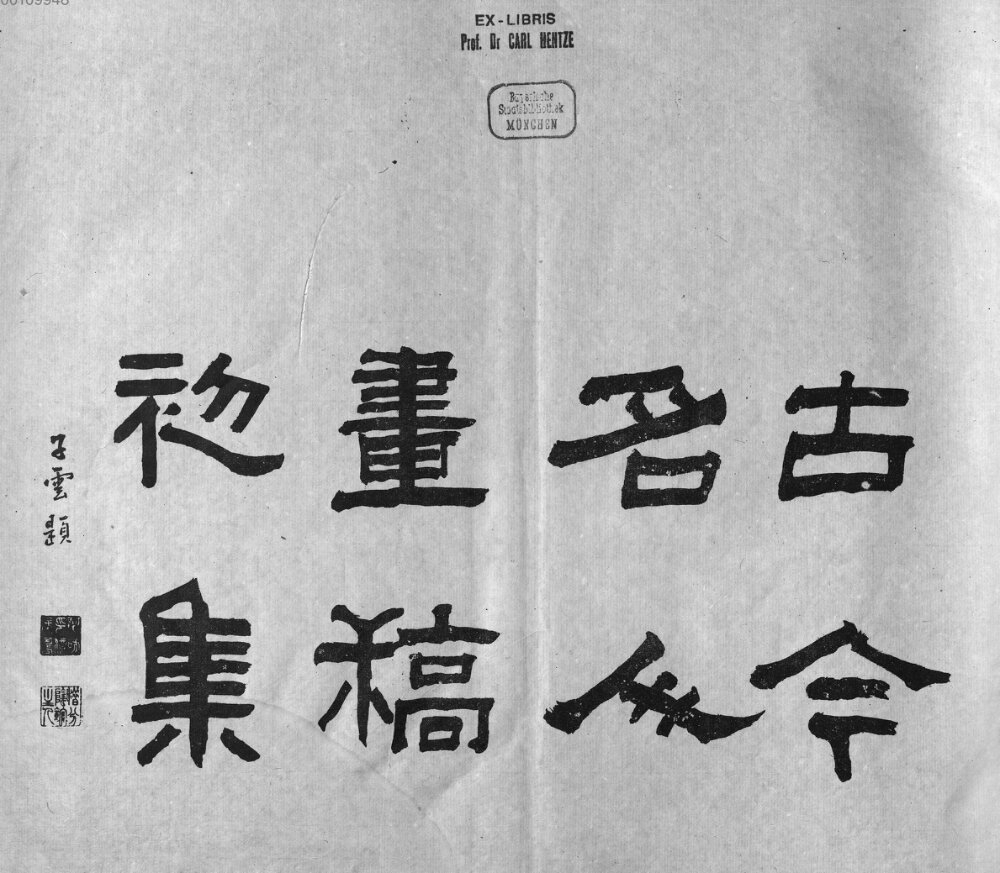 00109948
EX-LIBRIS
Prof. Dr CARL HENTZE
Bayerische
Staatsbibliothek
MÜNCHEN
古今
名人
畫稿
初集
子雲題